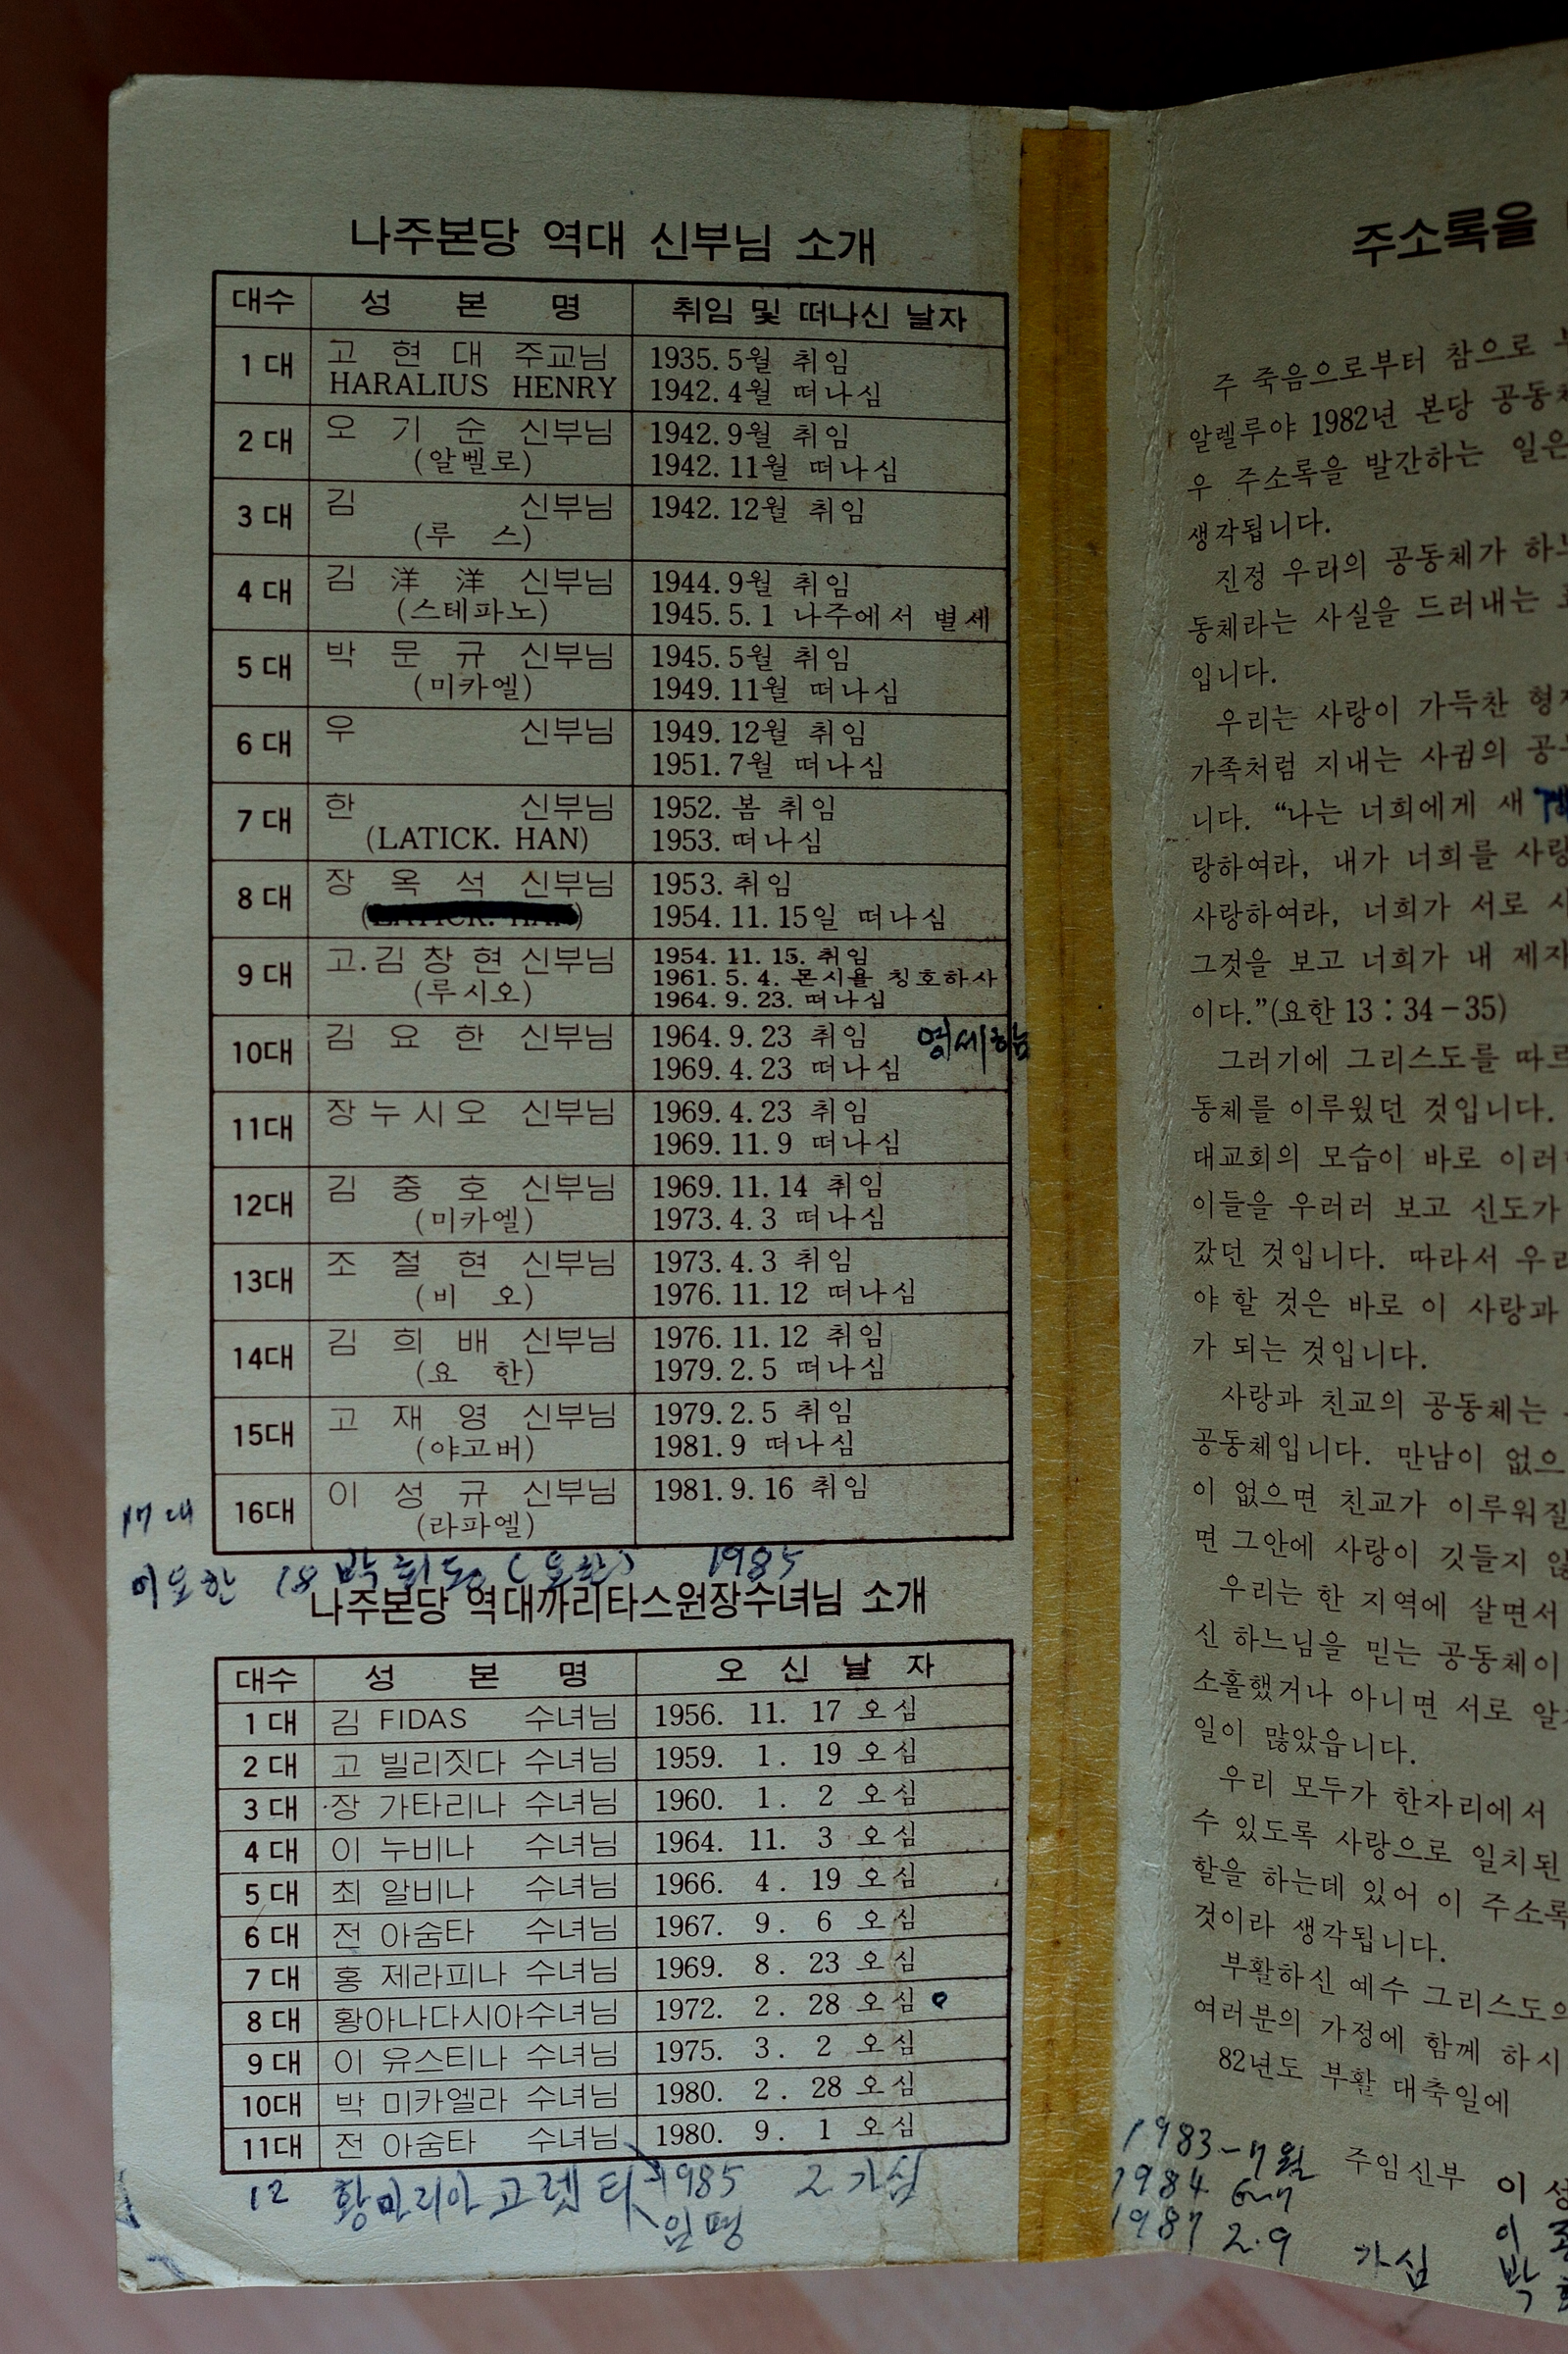 나주본당 역대 신부님 소개
대수 성 본 명 취임 및 떠나신 날자
1대 고 현 대 주교님 1935. 5월 취임
HARALIUS HENRY 1942. 4월 떠나심
2대 오 기 순 신부님 1942. 9월 취임
(알벨로) 1942. 11월 떠나심
3대 김 신부님 1942. 12월 취임
(루 스)
4대 김 洋 洋 신부님 1944. 9월 취임
(스테파노) 1945. 5. 1 나주에서 별세
5대 박 문 규 신부님 1945. 5월 취임
(미카엘) 1949. 11월 떠나심
6대 우 신부님 1949. 12월 취임
1951. 7월 떠나심
7대 한 신부님 1952. 봄 취임
(LATICK. HAN) 1953. 떠나심
8대 장 옥 석 신부님 1953. 취임
1954. 11. 15일 떠나심
9대 고.김 창 현 신부님 1954. 11. 15. 취임
(루시오) 1961. 5. 4. 몬시욜 칭호하사
1964. 9. 23. 떠나심
10대 김 요 한 신부님 1964. 9. 23 취임 영세하님
1969. 4. 23 떠나심
11대 장누시오 신부님 1969. 4. 23 취임
1969. 11. 9 떠나심
12대 김 충 호 신부님 1969. 11. 14 취임
(미카엘) 1973. 4. 3 떠나심
13대 조 철 현 신부님 1973. 4. 3 취임
(비 오) 1976. 11. 12 떠나심
14대 김 희 배 신부님 1976. 11. 12 취임
(요 한) 1979. 2. 5 떠나심
15대 고 재 영 신부님 1979. 2. 5 취임
(야고버) 1981. 9 떠나심
16대 이 성 규 신부님 1981. 9. 16 취임
(라파엘)
17대
이요한 18 박 (요한) 1985
나주본당 역대까리타스원장수녀님 소개
대수 성 본 명 오 신 날 자
1대 김 FIDAS 수녀님 1956. 11. 17 오심
2대 고 빌리짓다 수녀님 1959. 1. 19 오심
3대 장 가타리나 수녀님 1960. 1. 2 오심
4대 이 누비나 수녀님 1964. 11. 3 오심
5대 최 알비나 수녀님 1966. 4. 19 오심
6대 전 아숨타 수녀님 1967. 9. 6 오심
7대 홍 제라피나 수녀님 1969. 8. 23 오심
8대 황아나다시아수녀님 1972. 2. 28 오심
9대 이 유스티나 수녀님 1975. 3. 2 오심
10대 박 미카엘라 수녀님 1980. 2. 28 오심
11대 전 아숨타 수녀님 1980. 9. 1 오심
12 황마리아고렛티 1985 2 가심
주소록을
주 죽음으로부터 참으로
알렐루야 1982년 본당 공동체
우 주소록을 발간하는 일은
생각됩니다.
진정 우리의 공동체가 하느
동체라는 사실을 드러내는
입니다.
우리는 사랑이 가득찬 형제
가족처럼 지내는 사귐의 공동
니다. “나는 너희에게 새 계
랑하여라, 내가 너희를 사랑
사랑하여라, 너희가 서로 사
그것을 보고 너희가 내 제자
이다.”(요한 13 : 34－35)
그러기에 그리스도를 따르
동체를 이루웠던 것입니다.
대교회의 모습이 바로 이러한
이들을 우러러 보고 신도가
갔던 것입니다. 따라서 우리
야 할 것은 바로 이 사랑과
가 되는 것입니다.
사랑과 친교의 공동체는
공동체입니다. 만남이 없으
이 없으면 친교가 이루워질
면 그안에 사랑이 깃들지 않
우리는 한 지역에 살면서
신 하느님을 믿는 공동체이
소홀했거나 아니면 서로 알
일이 많았읍니다.
우리 모두가 한자리에서
수 있도록 사랑으로 일치된
할을 하는데 있어 이 주소록
것이라 생각됩니다.
부활하신 예수 그리스도의
여러분의 가정에 함께 하시
82년도 부활 대축일에
1983-7월 주임신부 이 성
1984 이
1987 2.9 가심 박